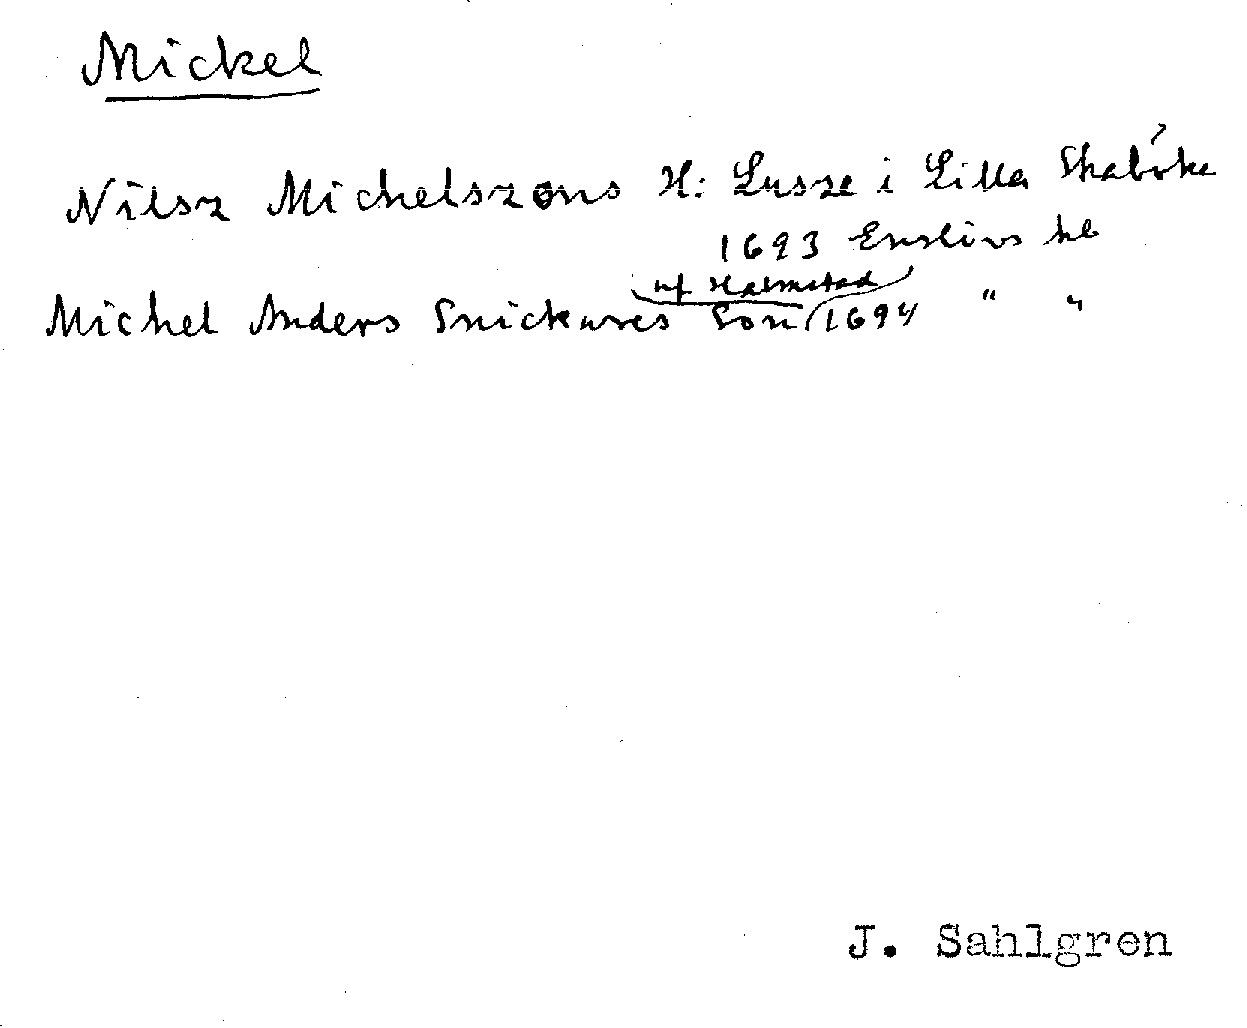 Mickel
Nilsz Michelszons H: Lusze i Lilla Skaböke
1693 Enslövs kb
uf Halmstad
Michel Anders Snickares Son 1694 " "
J. Sahlgren